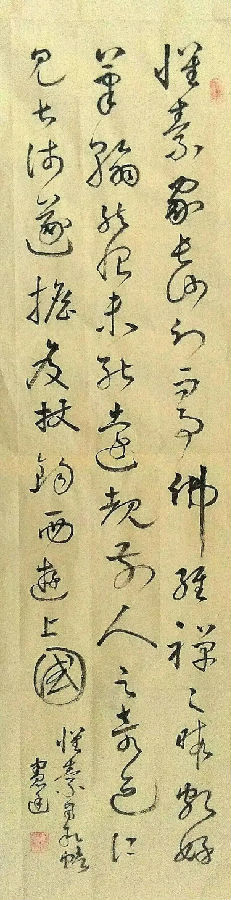 懷素家長沙幼而事佛經禪之暇頗好
筆翰然恨未能遠覩前人之奇迹所
見甚淺遂擔笈杖錫西遊上國
懷素自叙帖